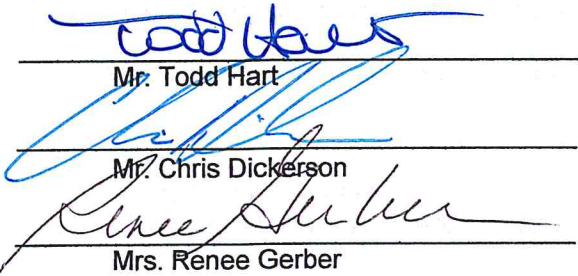 Todd Hart
Mr. Todd Hart
Mr. Chris Dickerson
Renee Gerber
Mrs. Renee Gerber